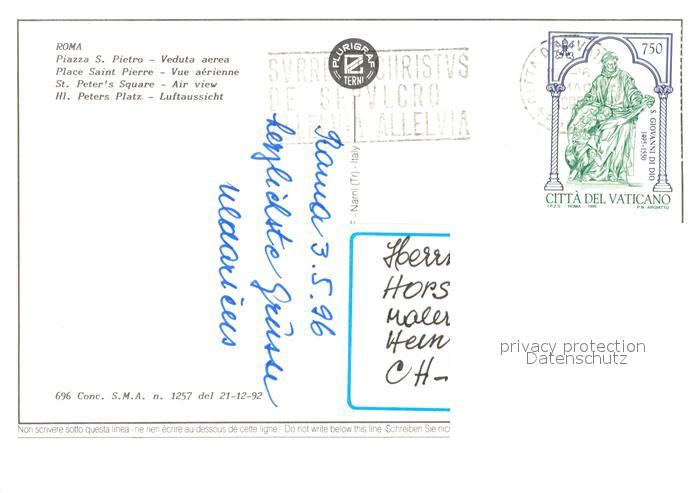 ROMA
Piazza S. Pietro – Veduta aerea
Place Saint Pierre – Vue aérienne
St. Peter's Square – Air view
Hl. Peters Platz – Luftaussicht
PLURIGRAF
TERNI
CHRISTVS
ALLELVIA
750
S. GIOVANNI DI DIO
1495-1550
CITTÀ DEL VATICANO
I.P.Z.S. - ROMA - 1995
- Narni (Tr) - Italy
Roma 3.5.96
herzlichste Grüsse
Herrn
HORS
Maler
Hein
CH-
privacy protection
Datenschutz
696 Conc. S.M.A. n. 1257 del 21-12-92
Non scrivere sotto questa linea - ne rien écrire au-dessous de cette ligne - Do not write below this line. Schreiben Sie nic